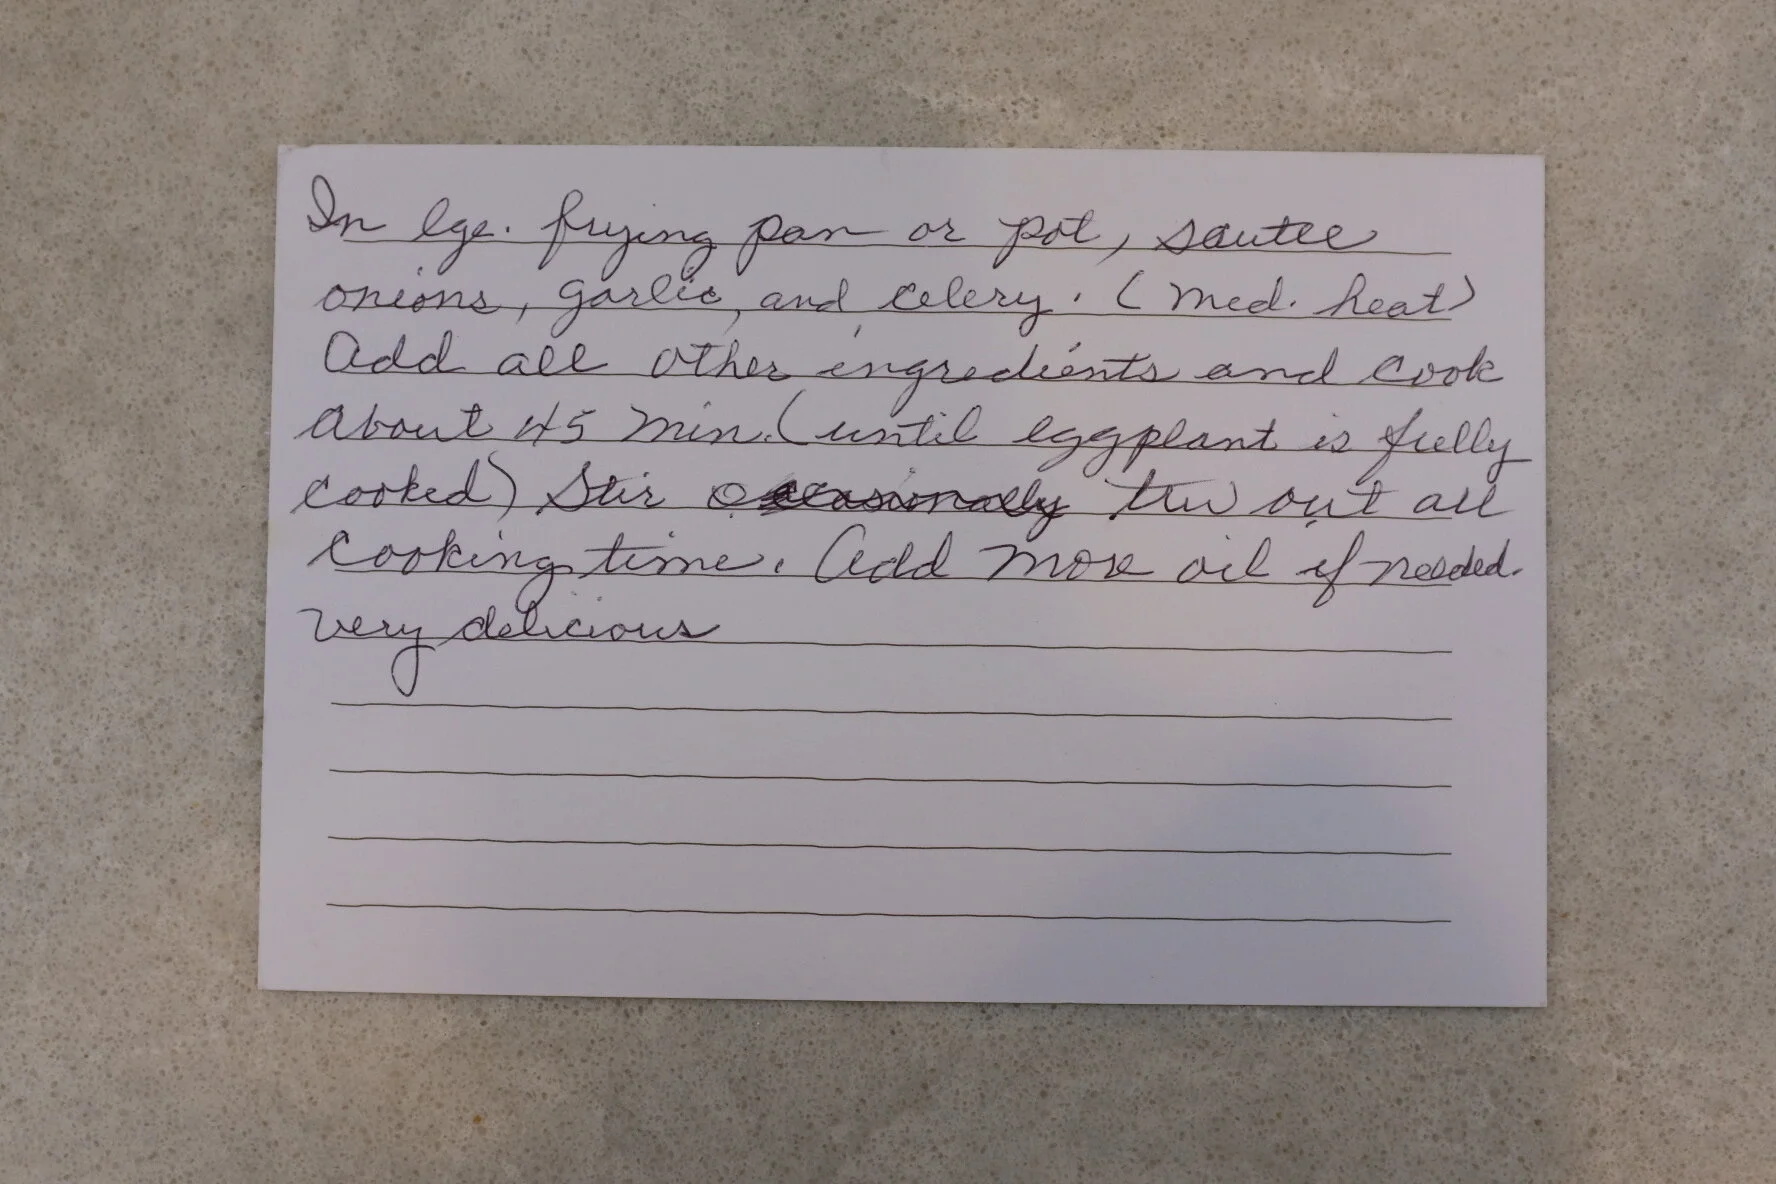 In lge. frying pan or pot, sautee
onions, garlic, and celery. (Med. heat)
Add all other ingredients and cook
about 45 min. (until eggplant is fully
cooked) Stir occasionally thru out all
cooking time. Add more oil if needed.
Very delicious